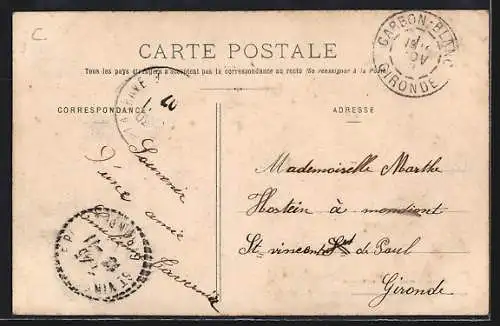 C.
CARTE POSTALE
Tous les pays étrangers n'acceptent pas la correspondance au recto (Se renseigner à la Poste)
CORRESPONDANCE
ADRESSE
Souvenir
d'une amie
Mademoiselle Marthe
Hostein à mondiont
St vincent de Paul
Gironde
CARBON-BLANC
GIRONDE
ST VINC